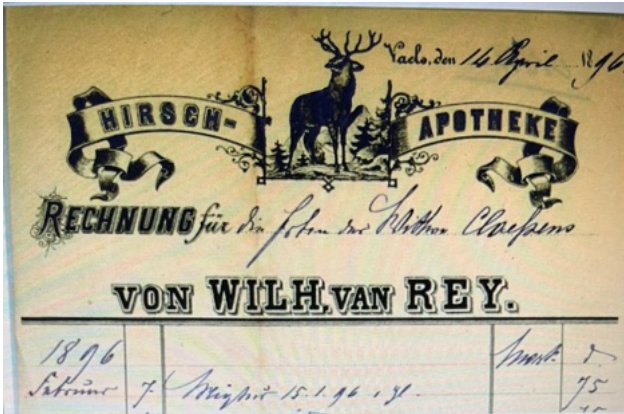 Vaels, den 16 April 1896
HIRSCH-APOTHEKE
RECHNUNG für die Erben der Witwe Claessens
VON WILH. VAN REY.
1896 Mark d.
Februar 7. Mixtur 15.1.96 1 gl. 75